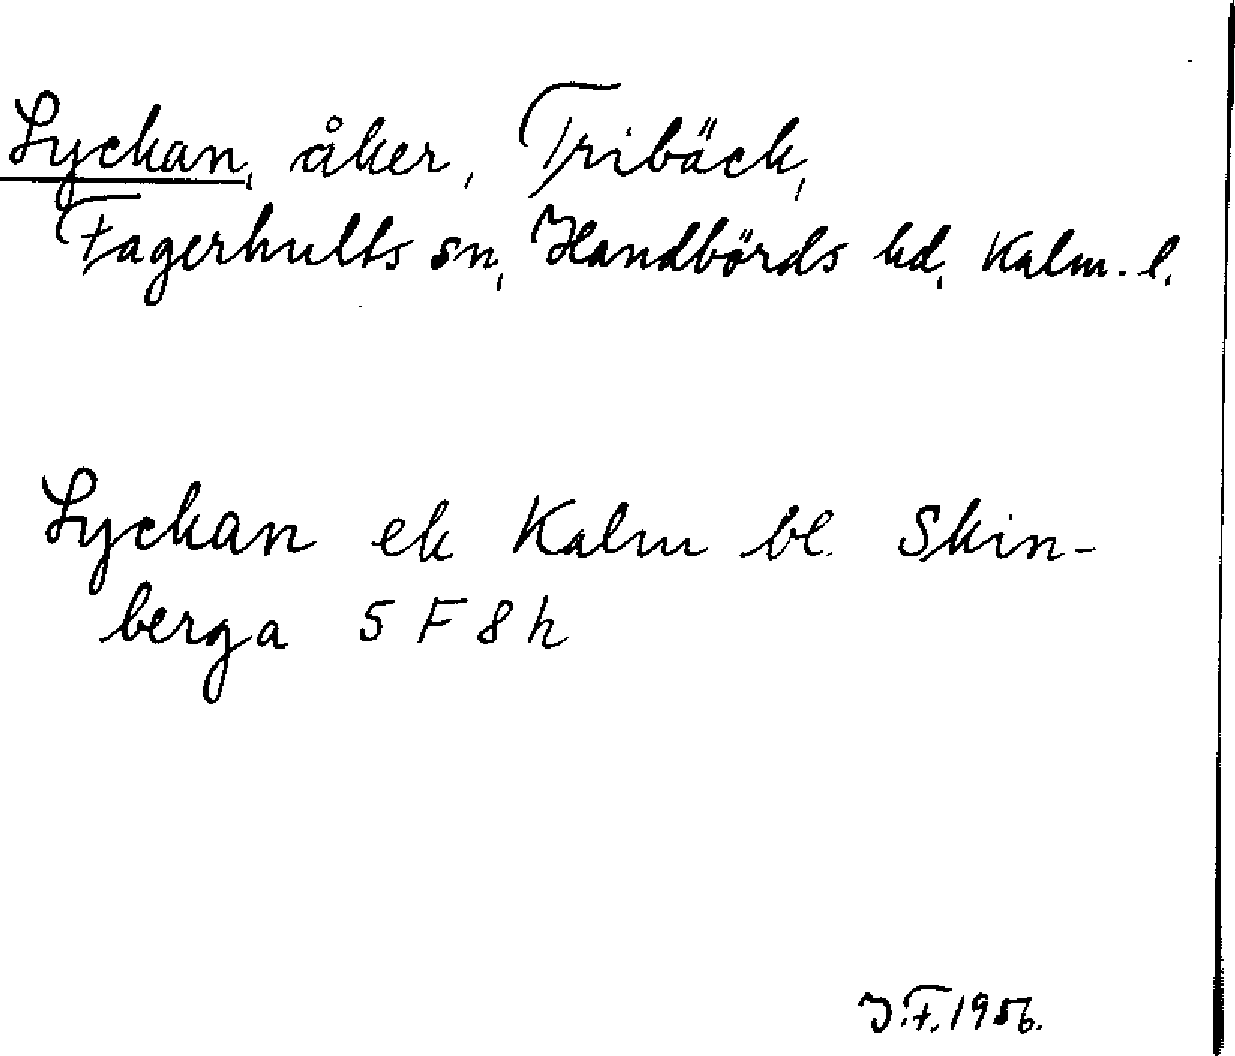 Lyckan, åker, Tribäck,
Fagerhults sn, Handbörds hd, Kalm. l.
Lyckan ek Kalm bl Skin-
berga 5 F 8 h
J.F. 1956.